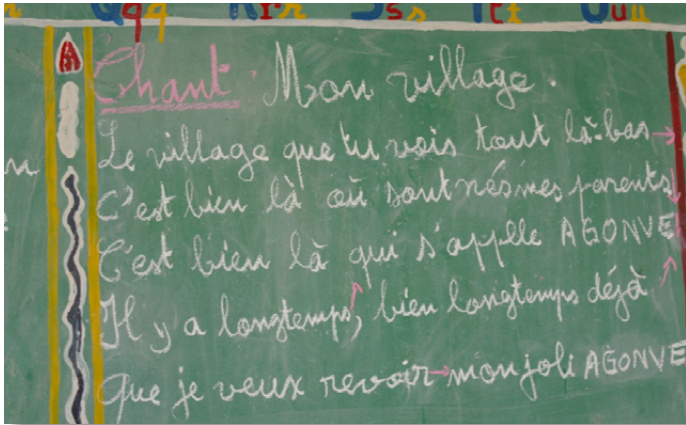 Qqq Rrr Sss Ttt Uuu
Chant. Mon village.
Le village que tu vois tout là-bas →
C'est bien là où sont nés mes parents
C'est bien là qui s'appelle AGONVE
Il y a longtemps, bien longtemps déjà
que je veux revoir → mon joli AGONVE